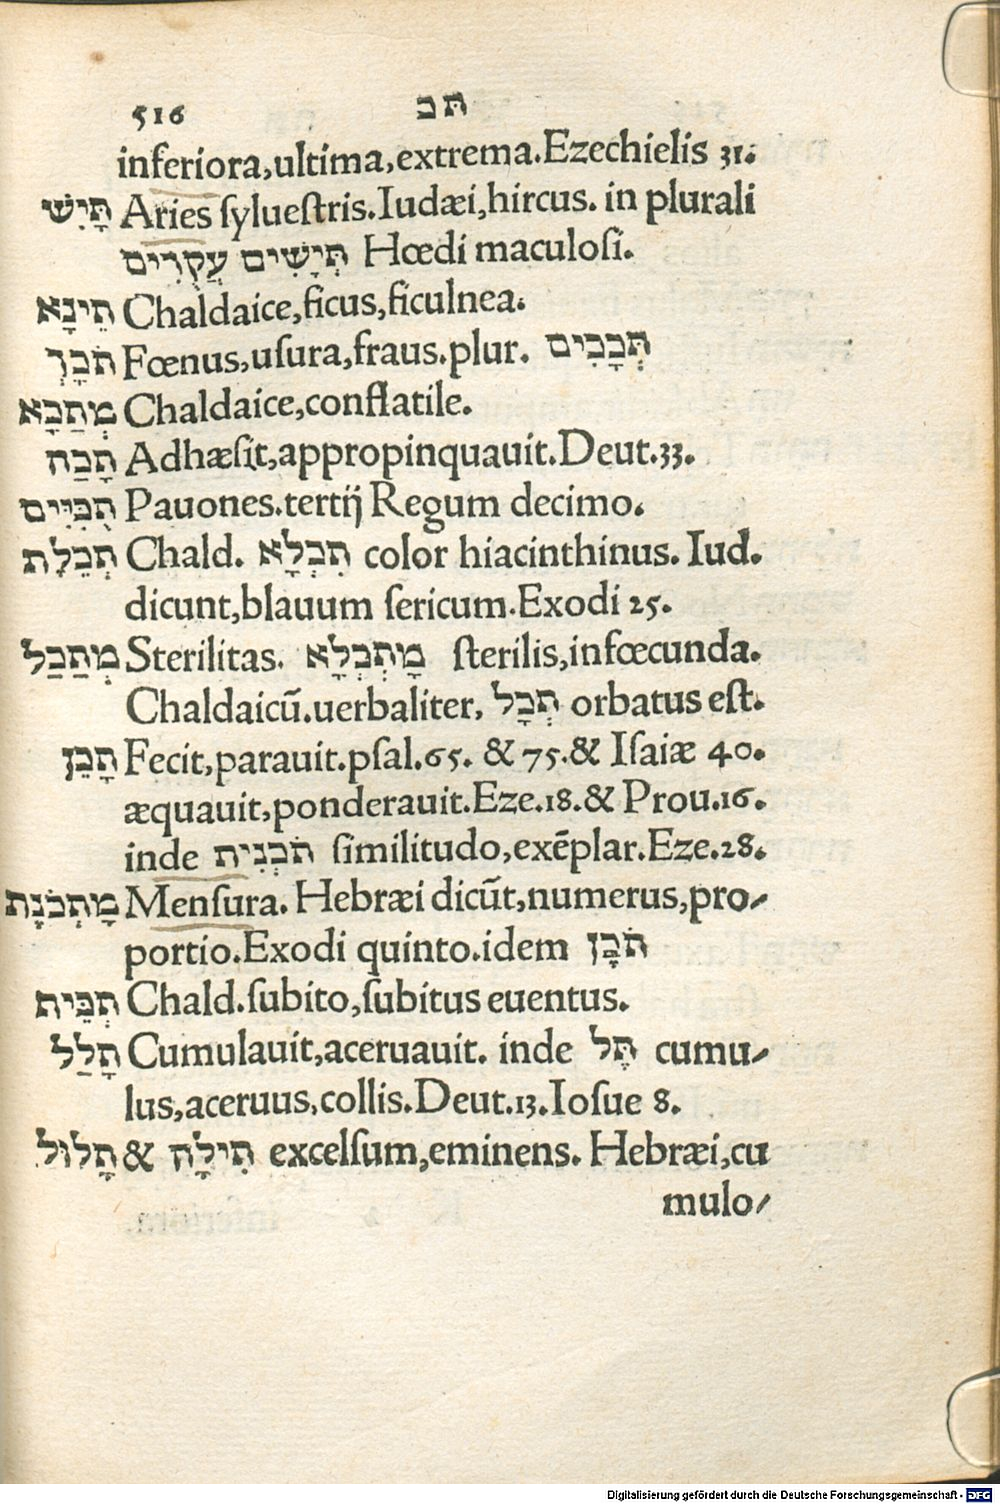 516 תכ
inferiora,ultima,extrema.Ezechielis 31.
תָּיִשׁ Aries ſylueſtris.Iudæi,hircus. in plurali
תְּיָשִׁים עֲקֻדִים Hœdi maculoſi.
תֵינָא Chaldaice,ficus,ficulnea.
תֹכָךְ Fœnus,uſura,fraus.plur. תְּכָכִים
מְתַכָא Chaldaice,conflatile.
תָכַח Adhæſit,appropinquauit.Deut.33.
תֻכִּיִּים Pauones.tertij Regum decimo.
תְכֵלֶת Chald. תִכְלָא color hiacinthinus. Iud.
dicunt,blauum ſericum.Exodi 25.
מְתַכַל Sterilitas. מָתְכְלָא ſterilis,infœcunda.
Chaldaicū.uerbaliter, תְכָל orbatus eſt.
תָכֵן Fecit,parauit.pſal.65. & 75.& Iſaiæ 40.
æquauit,ponderauit.Eze.18.& Prou.16.
inde תֹכְנִית ſimilitudo,exēplar.Eze.28.
מָתְכֹנֶת Menſura. Hebræi dicūt,numerus,pro⸗
portio.Exodi quinto.idem תֹכֶן
תְכֵּית Chald.ſubito,ſubitus euentus.
תָלַל Cumulauit,aceruauit. inde תֶּל cumu⸗
lus,aceruus,collis.Deut.13.Ioſue 8.
תָלוּל & תִילָה excelſum,eminens. Hebræi,cu
mulo⸗
Digitalisierung gefördert durch die Deutsche Forschungsgemeinschaft - DFG